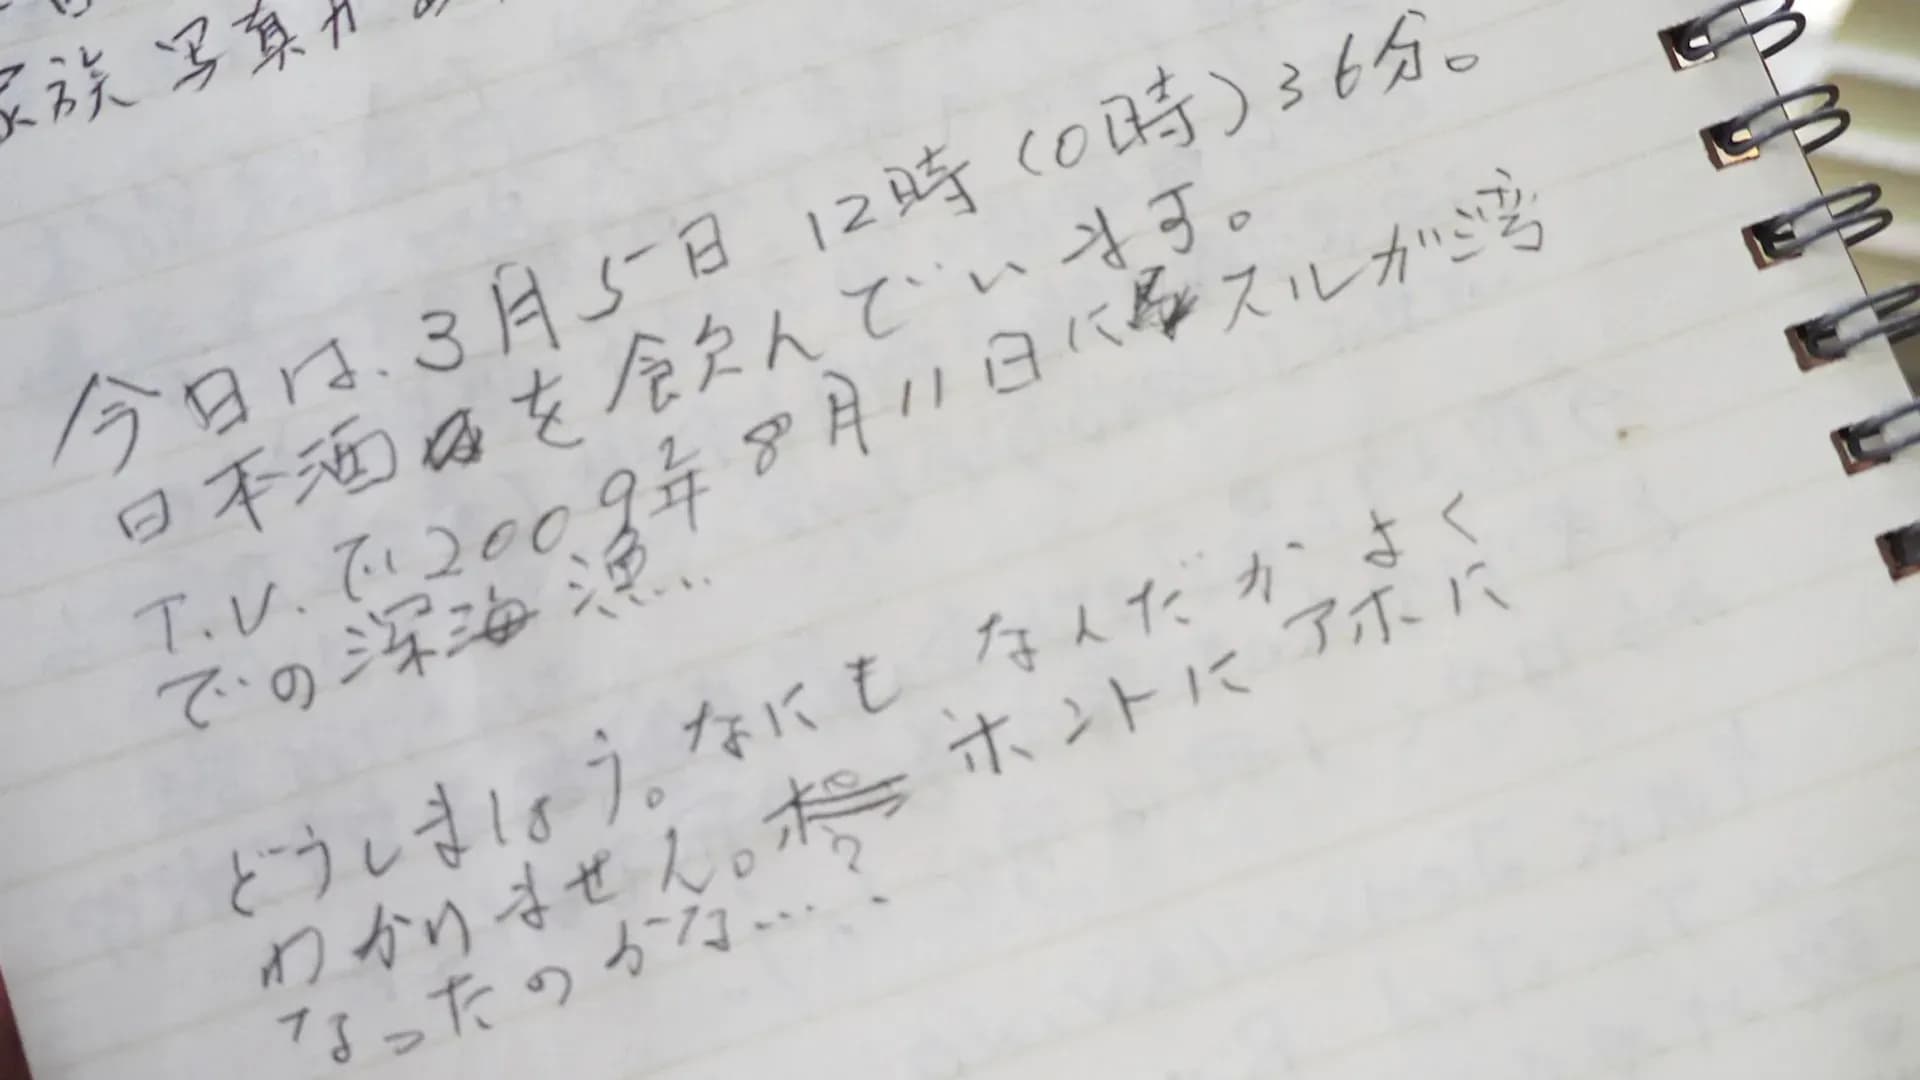 家族写真が
今日は、3月5日 12時(0時)36分。
日本酒を飲んでいます。
T.V.で2009年8月11日にスルガ湾
での深海漁…
どうしましょう。なにもなんだかよく
わかりません。ホントにアホに
なったのかな…?